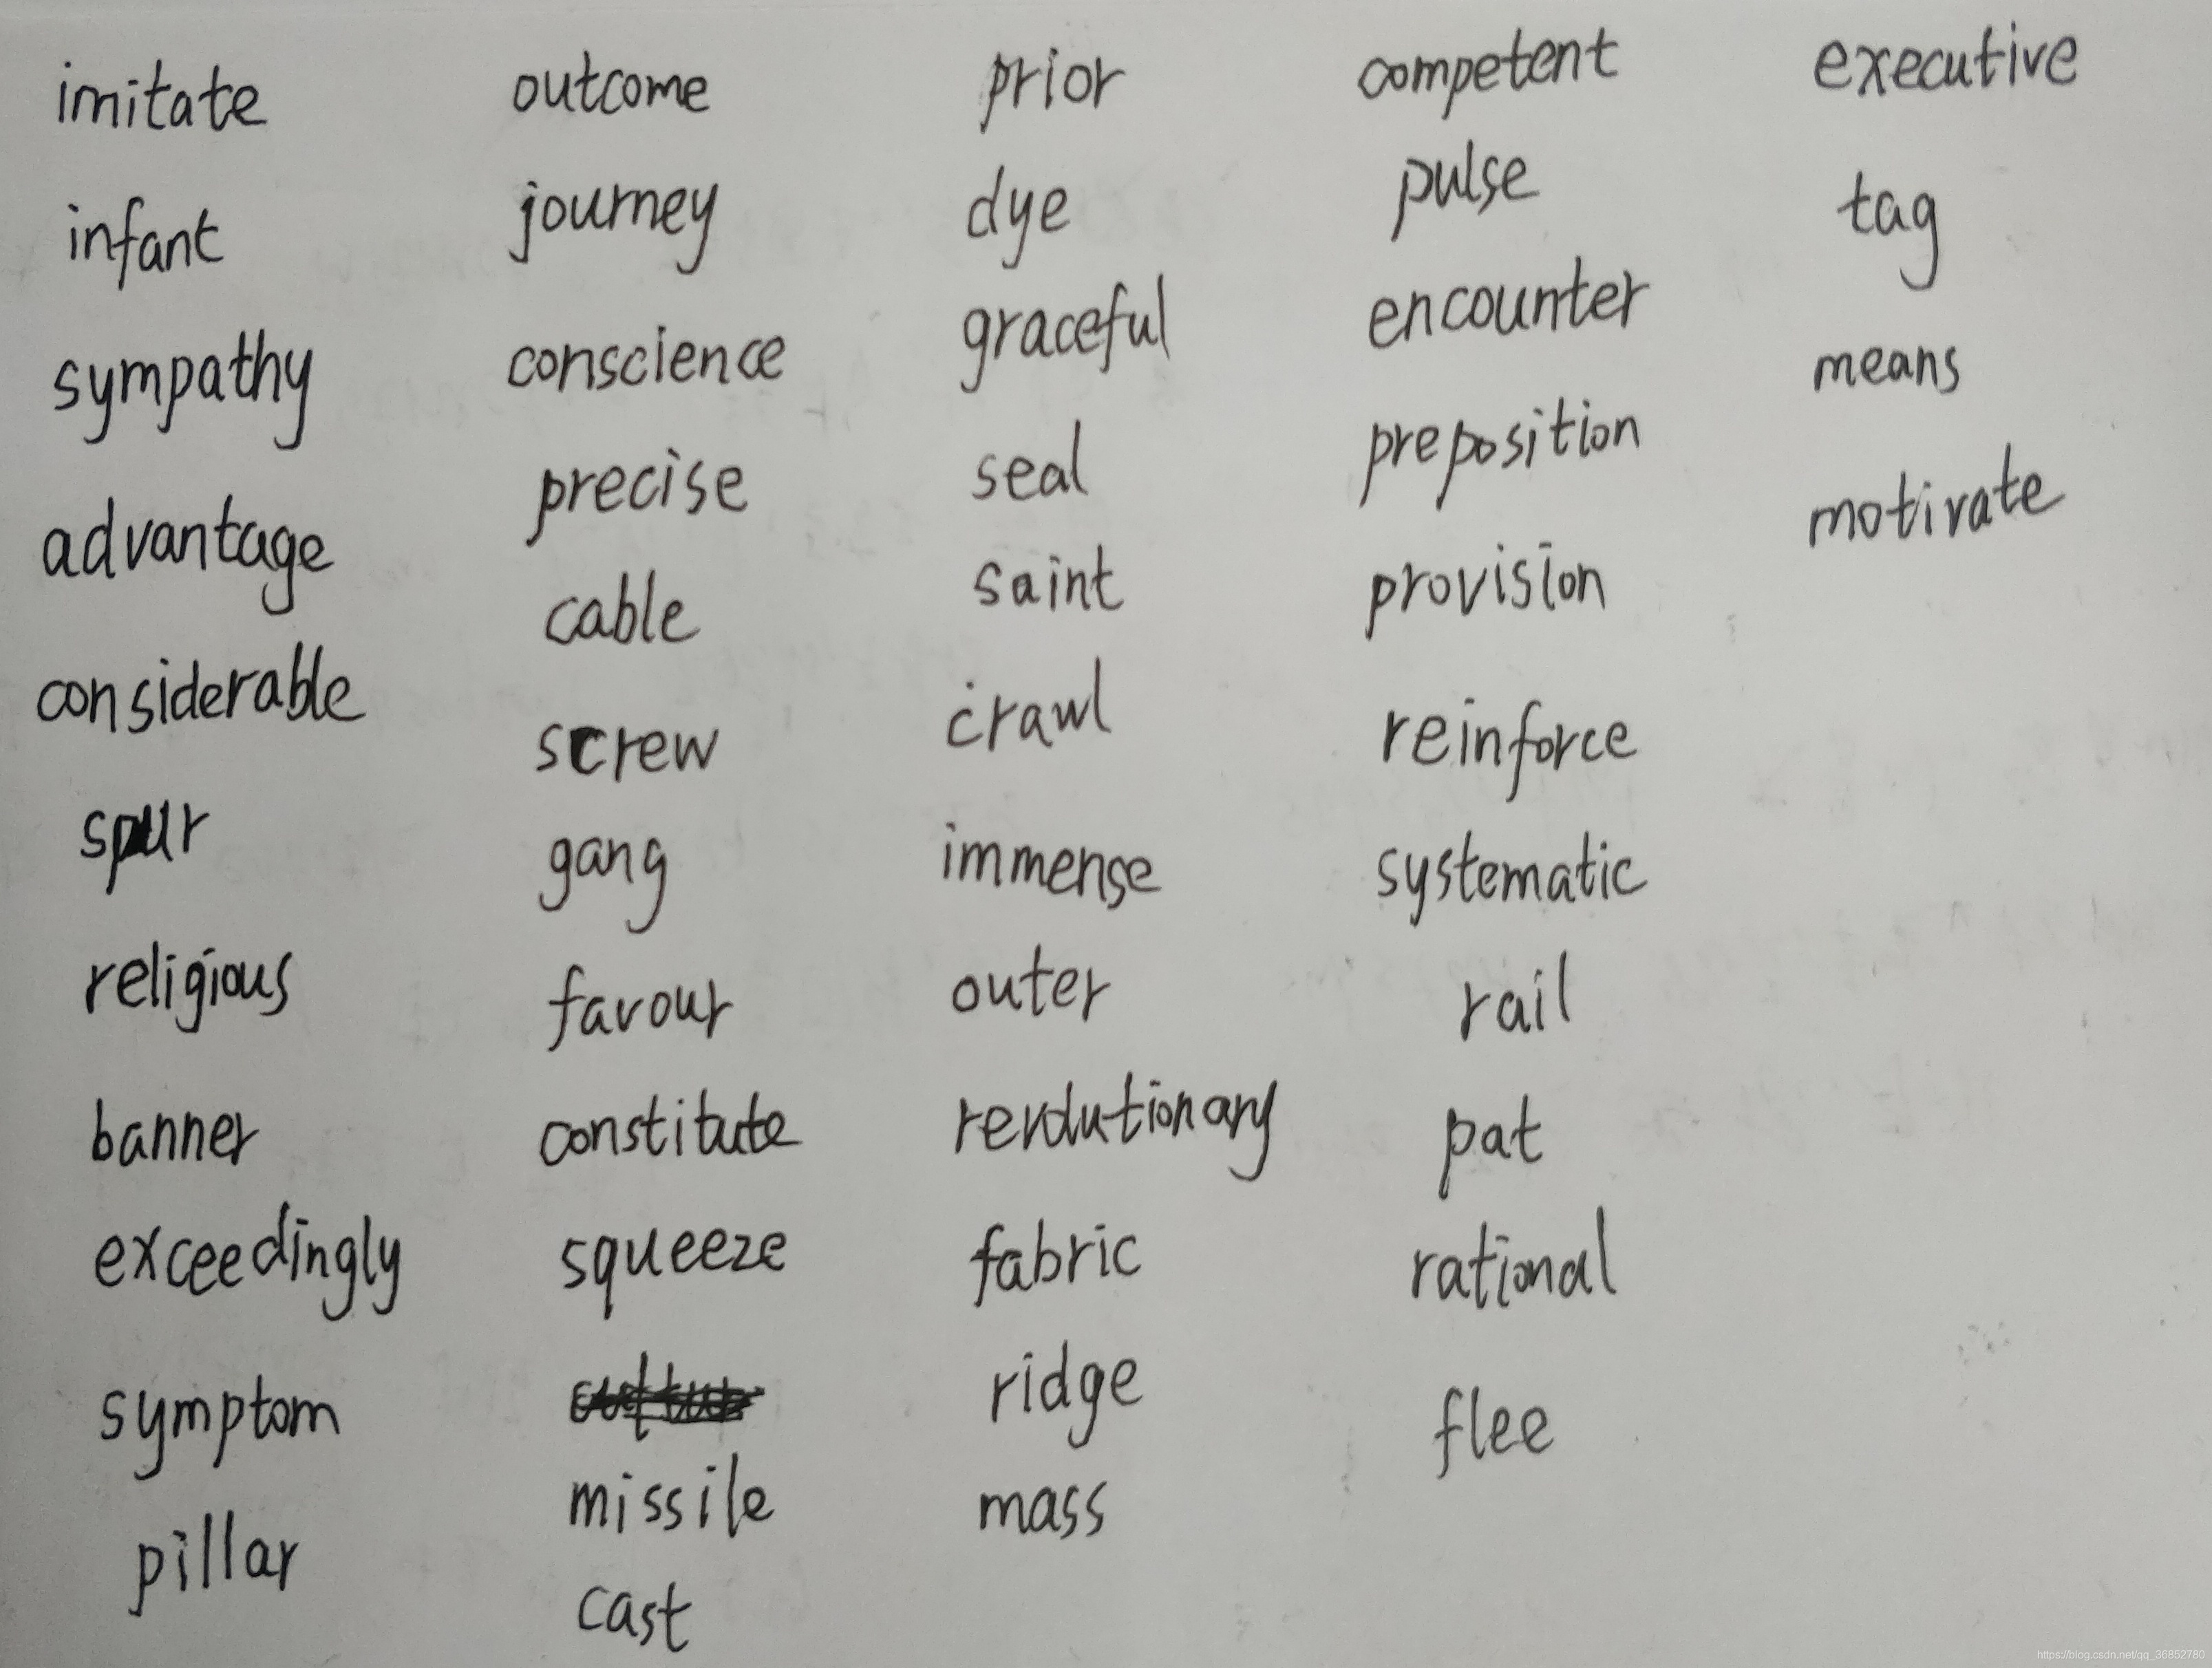 imitate
infant
sympathy
advantage
considerable
spur
religious
banner
exceedingly
symptom
pillar
outcome
journey
conscience
precise
cable
screw
gang
favour
constitute
squeeze
missile
cast
prior
dye
graceful
seal
saint
crawl
immense
outer
revolutionary
fabric
ridge
mass
competent
pulse
encounter
preposition
provision
reinforce
systematic
rail
pat
rational
flee
executive
tag
means
motivate
https://blog.csdn.net/qq_36852780